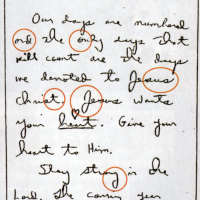 Our days are numbered
and the only days that
will count are the days
we devoted to Jesus
Christ. Jesus wants
your heart. Give your
heart to Him.
Stay strong in the
Lord. The coming year